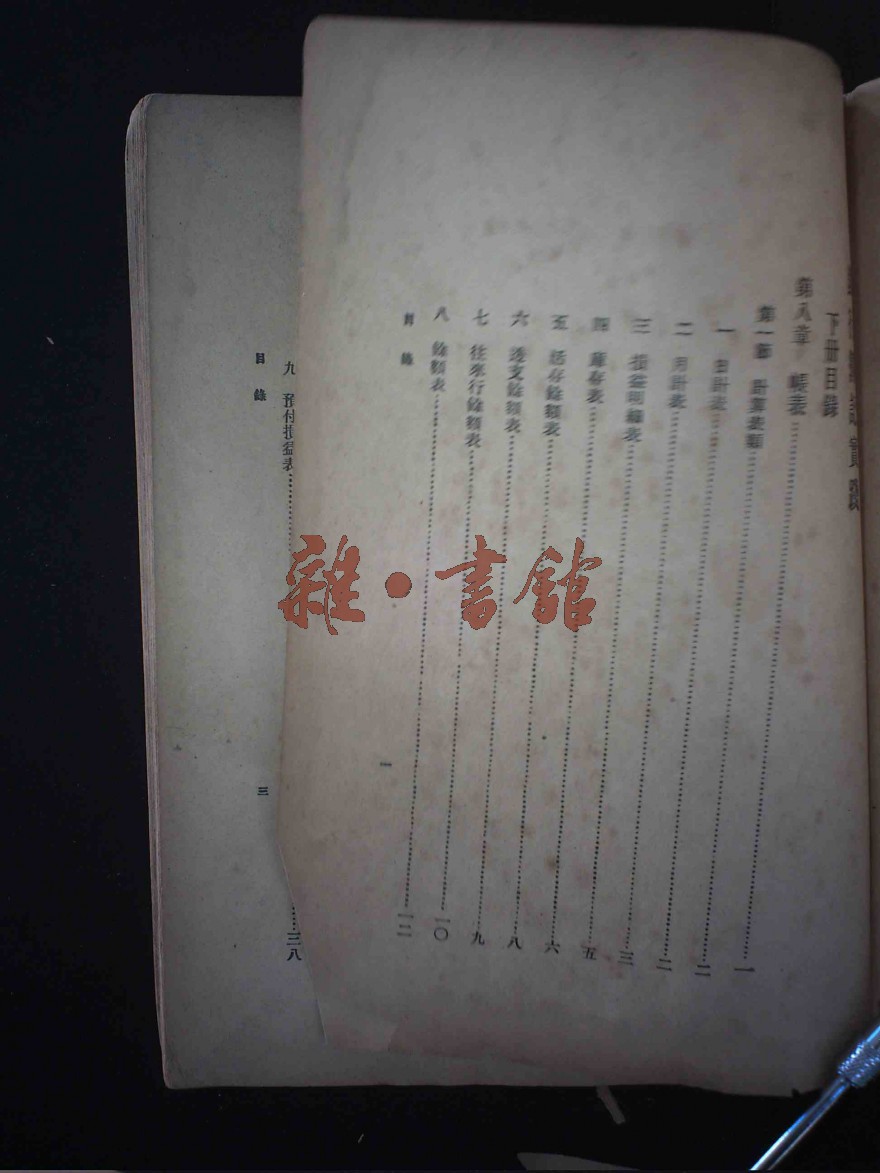 下冊目錄
第八章 帳表……一
第一節 計算表類……二
一 日計表……二
二 月計表……三
三 損益明細表……五
四 庫存表……六
五 活存餘額表……八
六 透支餘額表……九
七 往來行餘額表……一〇
八 餘額表……一二
目錄 一
九 預付損益表……三八
目錄 三
雜·書館